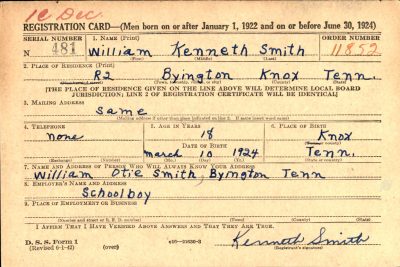 1c Dec
REGISTRATION CARD—(Men born on or after January 1, 1922 and on or before June 30, 1924)
SERIAL NUMBER 1. NAME (Print) ORDER NUMBER
N 481 William Kenneth Smith 11852
(First) (Middle) (Last)
2. PLACE OF RESIDENCE (Print)
R2 Byington Knox Tenn.
(Number and street) (Town, township, village, or city) (County) (State)
[THE PLACE OF RESIDENCE GIVEN ON THE LINE ABOVE WILL DETERMINE LOCAL BOARD
JURISDICTION; LINE 2 OF REGISTRATION CERTIFICATE WILL BE IDENTICAL]
3. MAILING ADDRESS
Same
(Mailing address if other than place indicated on line 2. If same insert word same)
4. TELEPHONE 5. AGE IN YEARS 6. PLACE OF BIRTH
none 18 Knox
DATE OF BIRTH (Town or county)
March 10 1924 Tenn.
(Exchange) (Number) (Mo.) (Day) (Yr.) (State or country)
7. NAME AND ADDRESS OF PERSON WHO WILL ALWAYS KNOW YOUR ADDRESS
William Otie Smith, Byington Tenn
8. EMPLOYER'S NAME AND ADDRESS
Schoolboy
9. PLACE OF EMPLOYMENT OR BUSINESS
(Number and street or R. F. D. number) (Town) (County) (State)
I AFFIRM THAT I HAVE VERIFIED ABOVE ANSWERS AND THAT THEY ARE TRUE.
D. S. S. Form 1
(Revised 6-1-42) (over) Kenneth Smith
(Registrant's signature)